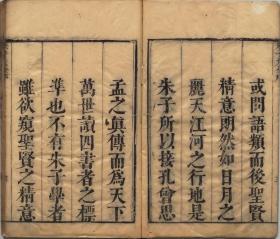 或問語類而後聖賢
精意朗然如日月之
麗天江河之行地是
朱子所以接孔曾思
孟之眞傳而爲天下
萬世讀四書者之標
準也不有朱子學者
雖欲窺聖賢之精意